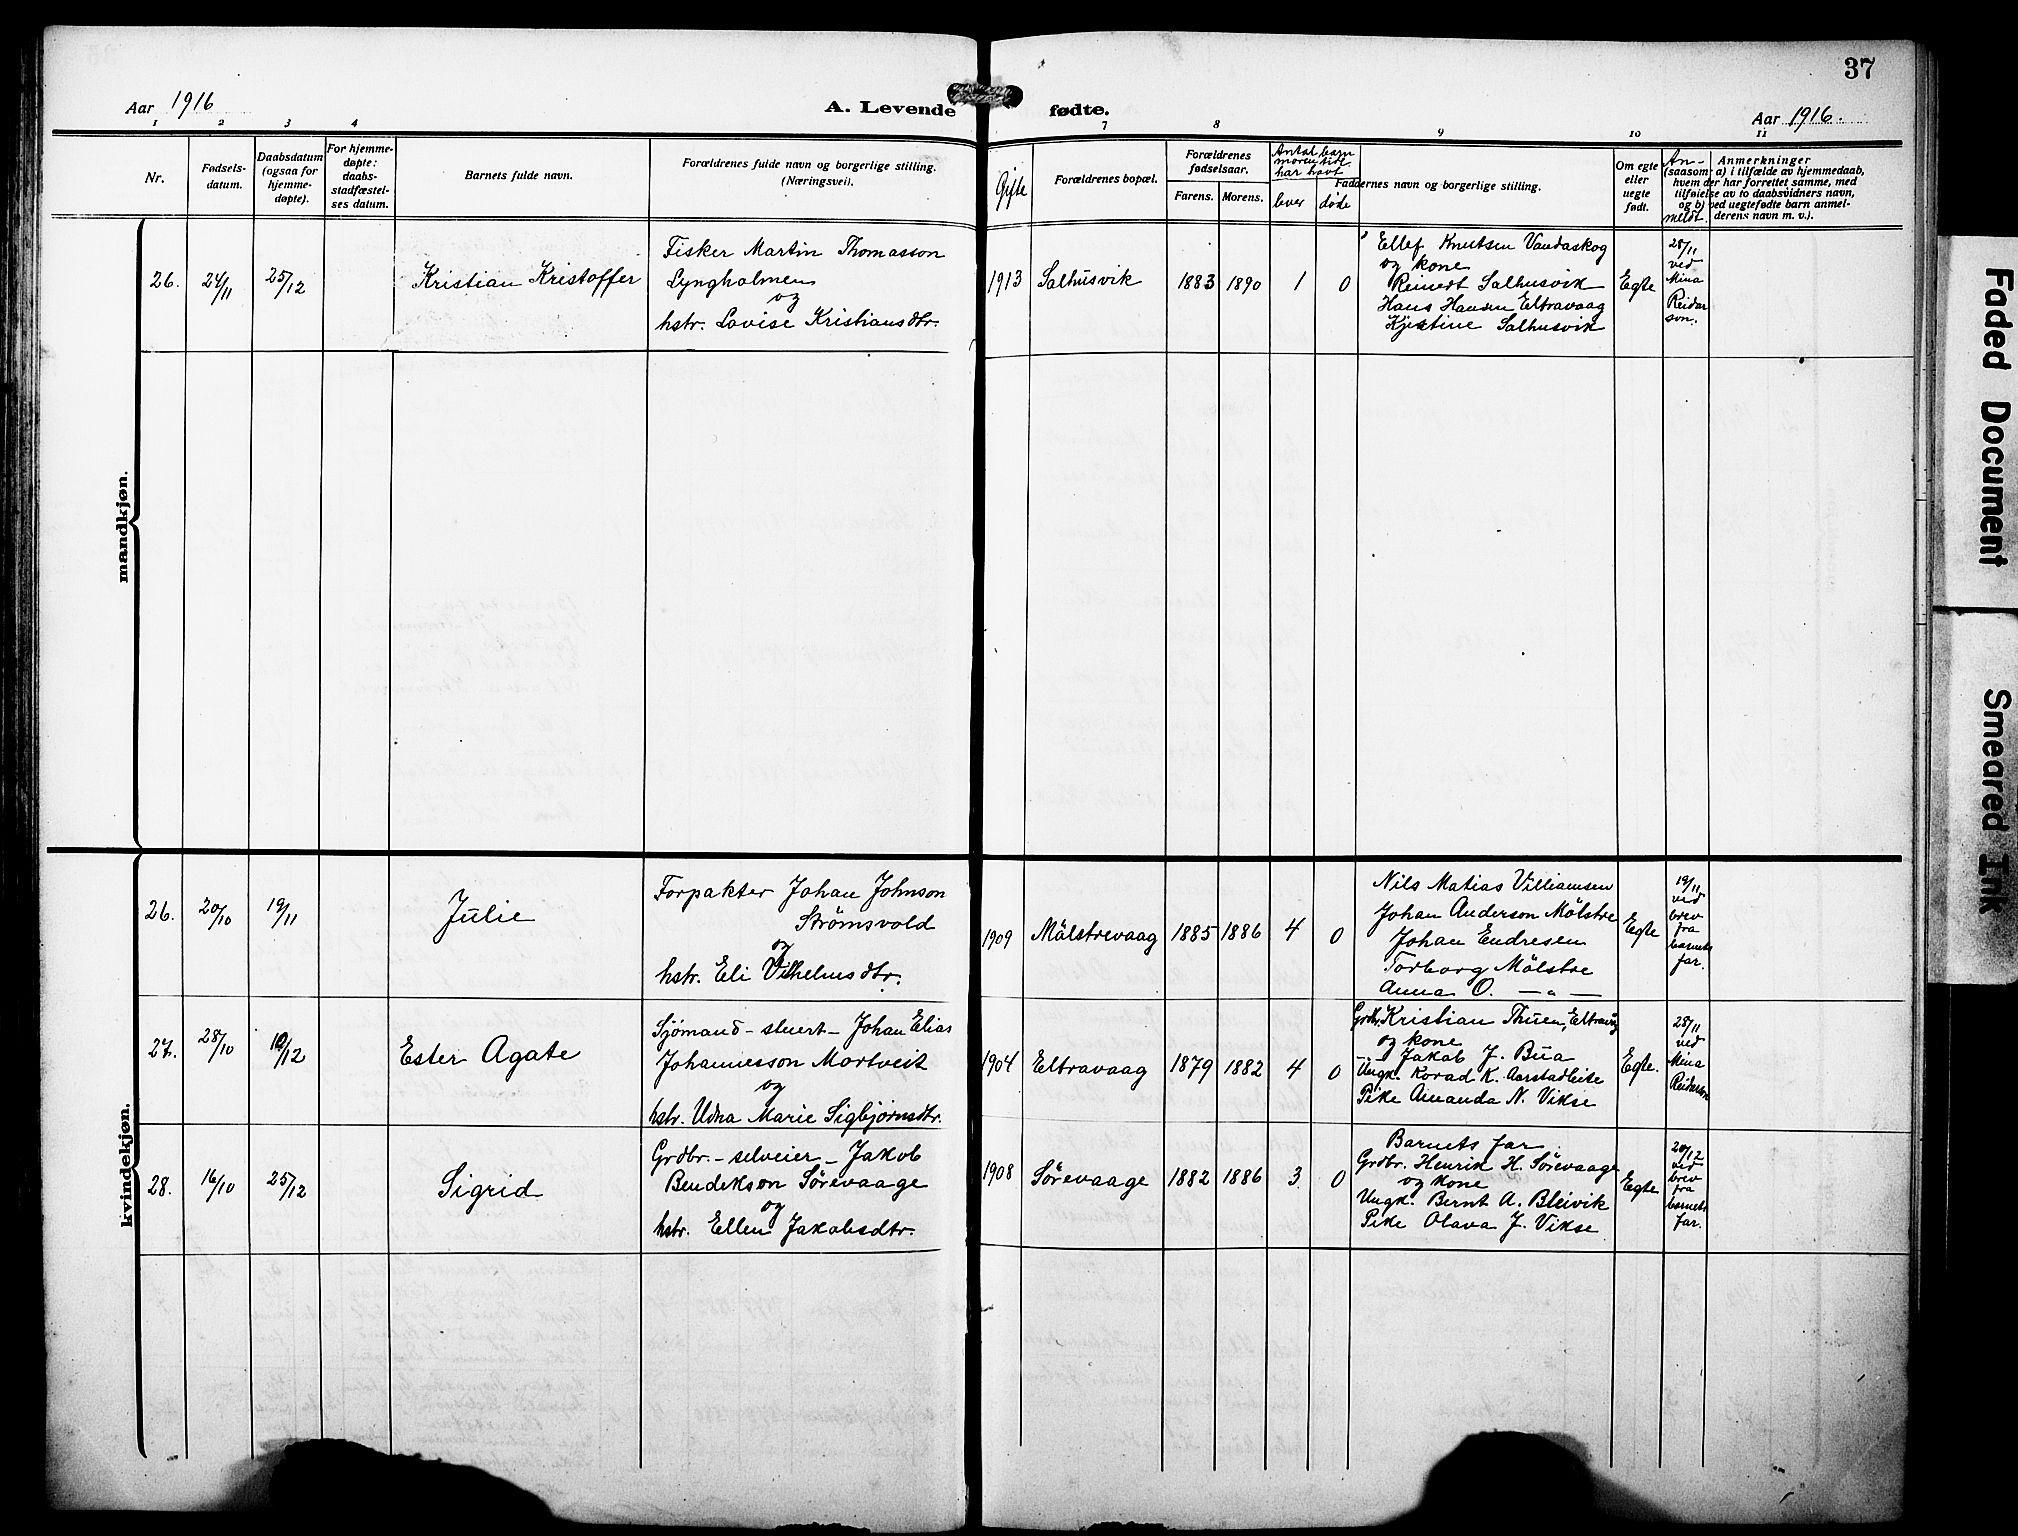 37
Aar 1916
A. Levende fødte.
Aar 1916.
1 2 3 4 7 8 9 10 11
Nr.
Fødsels-
datum.
Daabsdatum
(ogsaa for
hjemme-
døpte).
For hjemme-
døpte:
daabs-
stadfæstel-
ses datum.
Barnets fulde navn.
Forældrenes fulde navn og borgerlige stilling.
(Næringsvei).
Gifte
Forældrenes bopæl.
Forældrenes
fødselsaar.
Farens. Morens.
Antal barn
moren tidl.
har havt
lever døde
Faddernes navn og borgerlige stilling.
Om egte
eller
uegte
født.
An-
meldt.
Anmerkninger
(saasom a) i tilfælde av hjemmedaab,
hvem der har forrettet samme, med
tilføielse av to daabsvidners navn,
og b) ved uegtefødte barn anmel-
derens navn m. v.).
mandkjøn.
26. 24/11 25/12
Kristian Kristoffer
Fisker Martin Thomasson
Lyngholmen
og
hstr. Lovise Kristiansdtr.
1913 Salhusvik 1883 1890 1 0
Ellef Knutsen Vandaskog
og kone
Reinert Salhusvik
Hans Hansen Eltravaag
Kjestine Salhusvik
Egte
28/11
ved
Mina
Reidar
son.
kvindekjøn.
26. 20/10 19/11
Julie
Forpakter Johan Johnson
Strömsvold
og
hstr. Eli Vilhelmsdtr.
1909 Mölstrevaag 1885 1886 4 0
Nils Matias Villiamsen
Johan Anderson Mölstre
Johan Endresen
Torborg Mölstre
Anna O. — " —
Egte
19/11
ved
brev
fra
barnets
far.
27. 28/10 10/12
Ester Agate
Sjömand - stuert - Johan Elias
Johannesson Mortveit
og
hstr. Udna Marie Sigbjörnsdtr.
1904 Eltravaag 1879 1882 4 0
Grdbr. Kristian Thuen, Eltravåg
og kone
— " — Jakob J. Bua
Ungk. Konrad K. Aarstadleite
Pike Amanda N. Vikse
Egte.
28/11
ved
Mina
Reidarson
28. 16/10 25/12
Sigrid
Grdbr. - selveier - Jakob
Bendikson Sörevaage
og
hstr. Ellen Jakobsdtr.
1908 Sörevaage 1882 1886 3 0
Barnets far.
Grdbr. Henrik H. Sörevaage
og kone
Ungk. Bernt A. Bleivik
Pike Olava J. Vikse
Egte
20/12
ved
brev
fra
barnets
far.
Faded Document
Smeared Ink